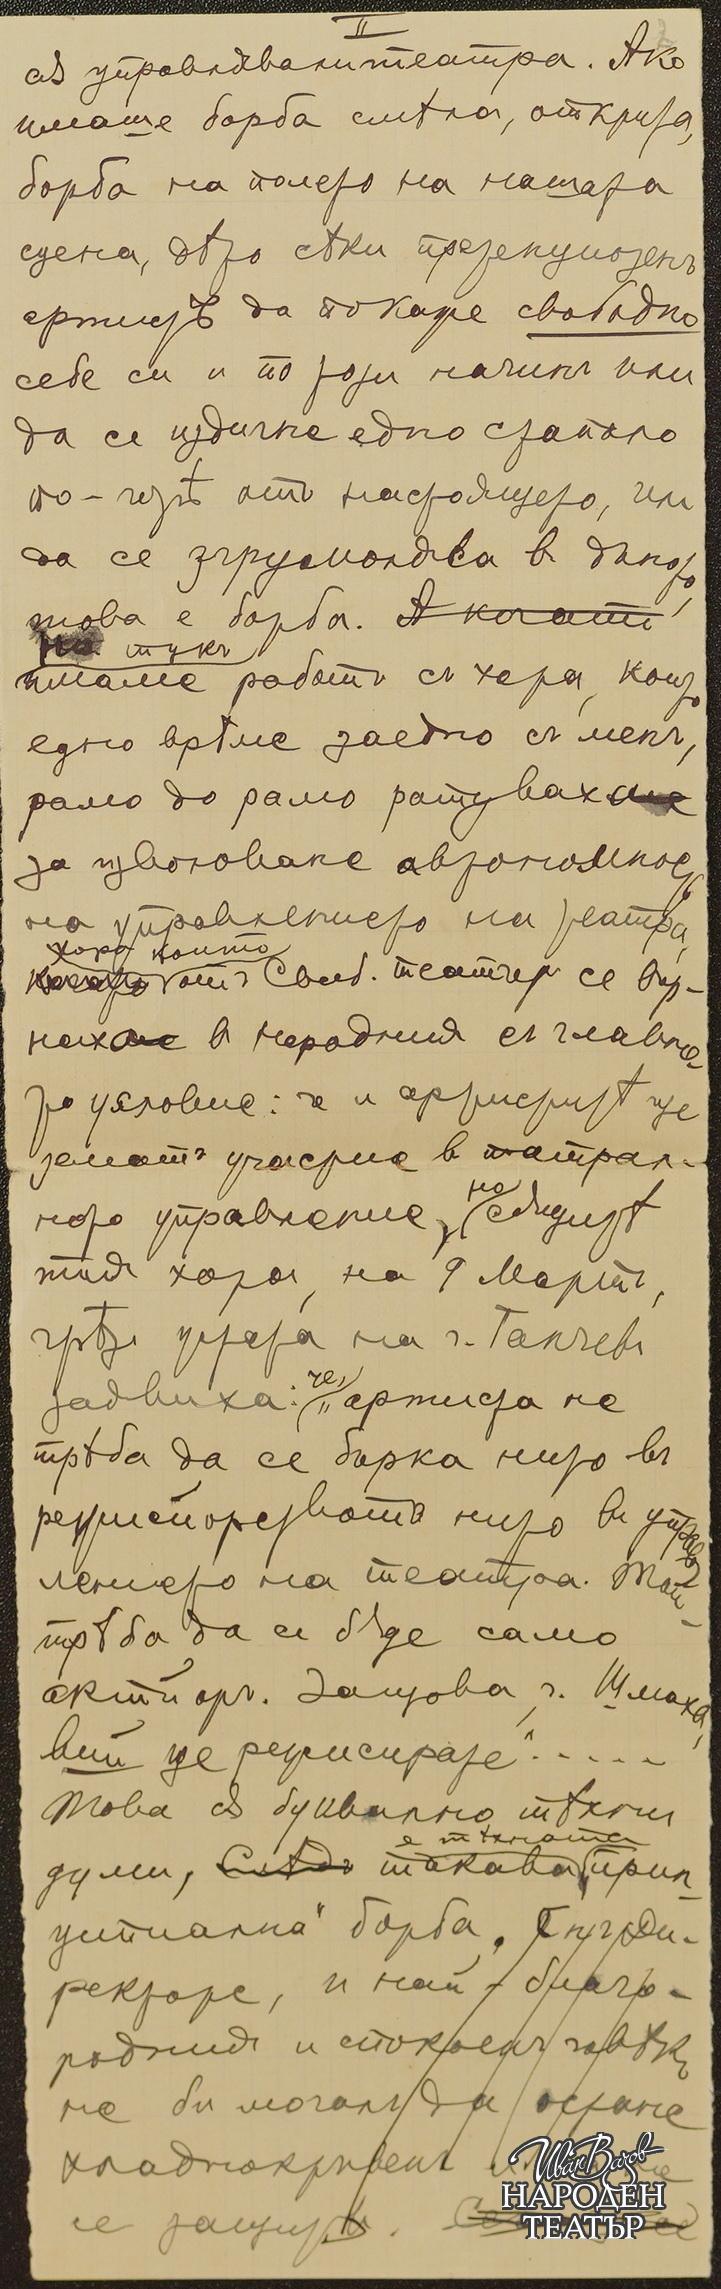 II
сѫ управлявали театра. Ако
имаше борба смѣла, открита,
борба на полето на нашата
сцена, дѣто сѣки претенциозенъ
артистъ да покаже свободно
себе си и по този начинъ или
да се издигне едно стъпало
по-горѣ отъ настоящето, или
да се згрумолясва в дъното,
това е борба. А когато
на тукъ
имаме работа съ хора, които
едно врѣме заедно съ менъ,
рамо до рамо ратувахме
за извоюване автономность
на управлението на театра,
хора които
когато отъ Своб. театъръ се вър-
нахме в народния съ главно-
то условие: че и артиститѣ ще
земат участие в театрал-
ното управление, но сѫщитѣ
тия хора, на 9 Мартъ,
чрѣзъ устата на г. Ганчевъ
задвиха: "че артиста не
трѣба да се бърка нито въ
режисьорството нито въ управ-
лението на театра. Той
трѣба да си бѫде само
актьоръ. Защото г. Шмаха,
вий ще режисирате".....
Това сѫ буквално тѣхни
думи, Слѣдъ такава е тѣхната "прин-
ципиална" борба. Г-нъ Ди-
ректоре, и най-благо-
родния и спокоенъ човѣкъ
не би могалъ да остане
хладнокръвенъ и
се защити.
Иван Вазов
НАРОДЕН
ТЕАТЪР